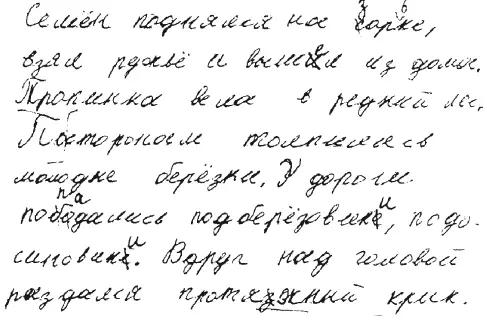 Семён поднялся на зорке,
взял ружьё и вышел из дома.
Тропинка вела в редкий лес.
Посторонам толпились
молодые берёзки. У дороги
попадались подберёзовики, подо-
синовики. Вдруг над головой
раздался протяжный крик.